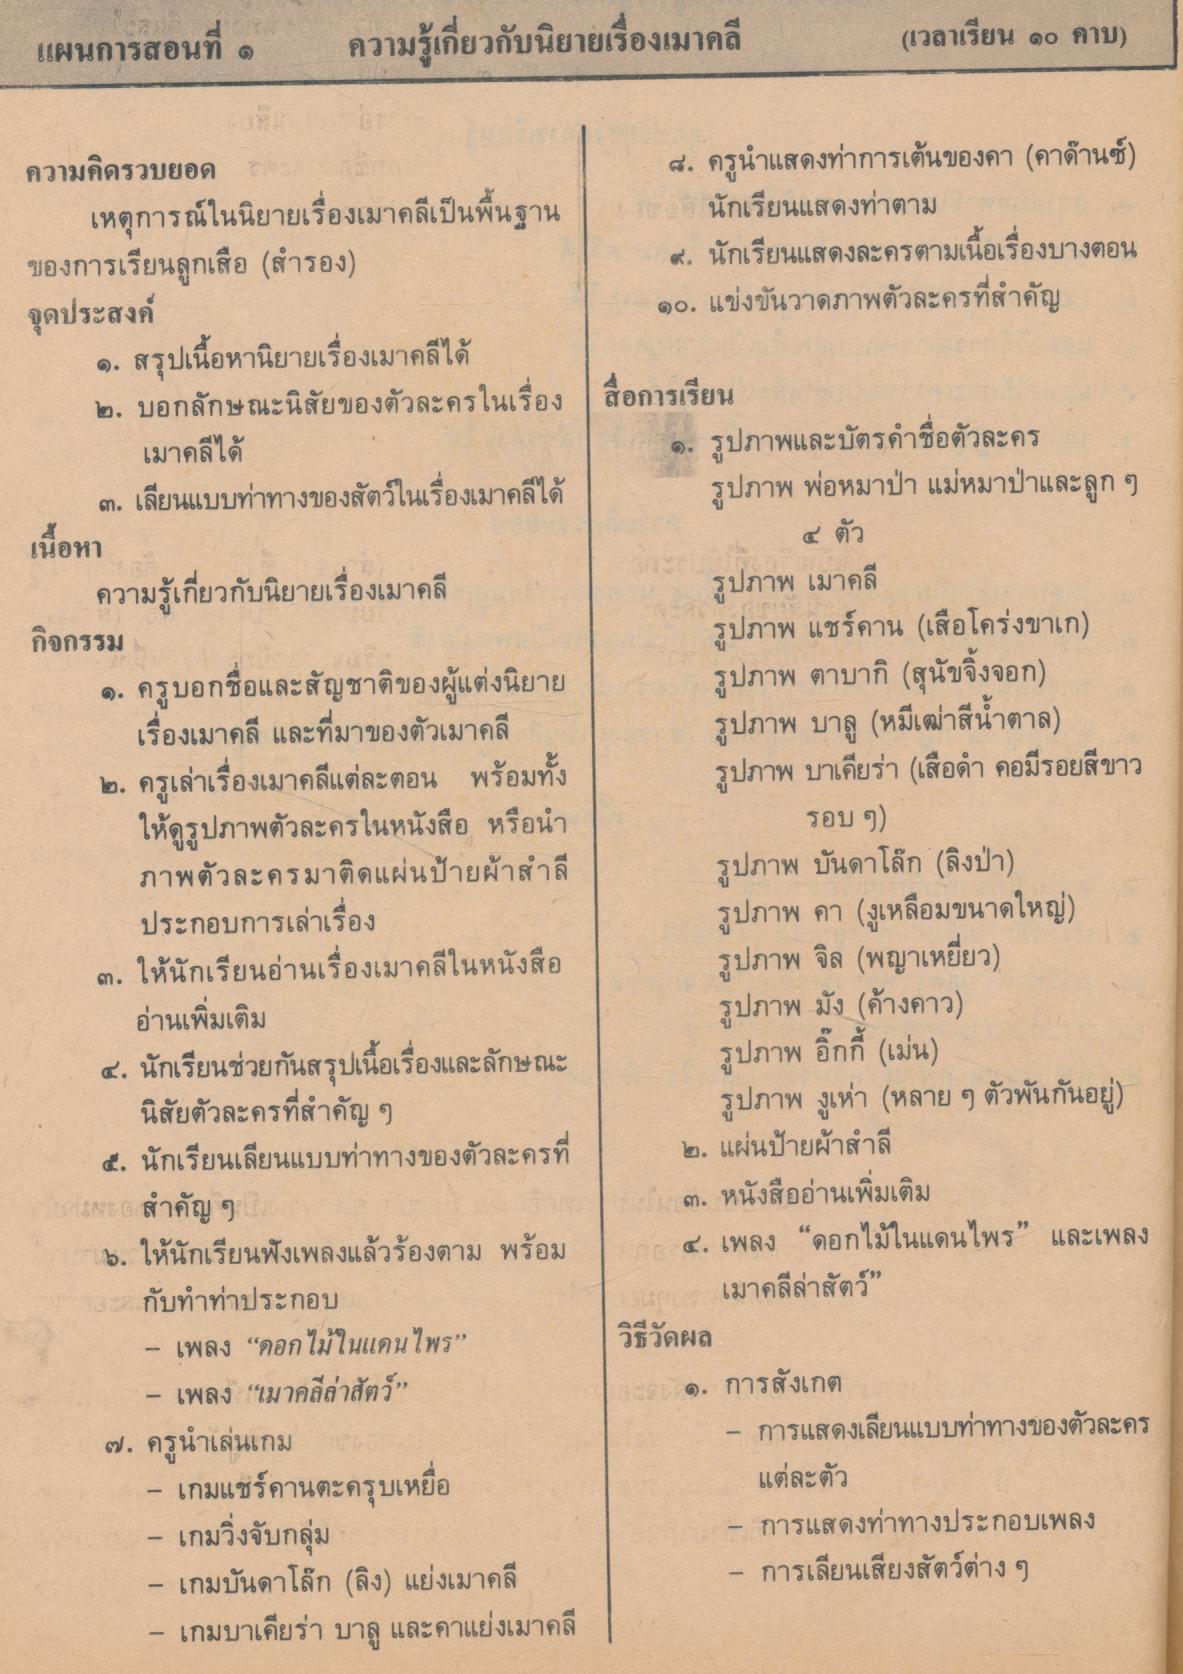 แผนการสอนที่ ๑ ความรู้เกี่ยวกับนิยายเรื่องเมาคลี (เวลาเรียน ๑๐ คาบ)
ความคิดรวบยอด
เหตุการณ์ในนิยายเรื่องเมาคลีเป็นพื้นฐาน
ของการเรียนลูกเสือ (สำรอง)
จุดประสงค์
๑. สรุปเนื้อหานิยายเรื่องเมาคลีได้
๒. บอกลักษณะนิสัยของตัวละครในเรื่อง
เมาคลีได้
๓. เลียนแบบท่าทางของสัตว์ในเรื่องเมาคลีได้
เนื้อหา
ความรู้เกี่ยวกับนิยายเรื่องเมาคลี
กิจกรรม
๑. ครูบอกชื่อและสัญชาติของผู้แต่งนิยาย
เรื่องเมาคลี และที่มาของตัวเมาคลี
๒. ครูเล่าเรื่องเมาคลีแต่ละตอน พร้อมทั้ง
ให้ดูรูปภาพตัวละครในหนังสือ หรือนำ
ภาพตัวละครมาติดแผ่นป้ายผ้าสำลี
ประกอบการเล่าเรื่อง
๓. ให้นักเรียนอ่านเรื่องเมาคลีในหนังสือ
อ่านเพิ่มเติม
๔. นักเรียนช่วยกันสรุปเนื้อเรื่องและลักษณะ
นิสัยตัวละครที่สำคัญ ๆ
๕. นักเรียนเลียนแบบท่าทางของตัวละครที่
สำคัญ ๆ
๖. ให้นักเรียนฟังเพลงแล้วร้องตาม พร้อม
กับทำท่าประกอบ
– เพลง “ดอกไม้ในแดนไพร”
– เพลง “เมาคลีล่าสัตว์”
๗. ครูนำเล่นเกม
– เกมแชร์คานตะครุบเหยื่อ
– เกมวิ่งจับกลุ่ม
– เกมบันดาโล๊ก (ลิง) แย่งเมาคลี
– เกมบาเคียร่า บาลู และคาแย่งเมาคลี
๘. ครูนำแสดงท่าการเต้นของคา (คาด๊านซ์)
นักเรียนแสดงท่าตาม
๙. นักเรียนแสดงละครตามเนื้อเรื่องบางตอน
๑๐. แข่งขันวาดภาพตัวละครที่สำคัญ
สื่อการเรียน
๑. รูปภาพและบัตรคำชื่อตัวละคร
รูปภาพ พ่อหมาป่า แม่หมาป่าและลูก ๆ
๔ ตัว
รูปภาพ เมาคลี
รูปภาพ แชร์คาน (เสือโคร่งขาเก)
รูปภาพ ตาบากิ (สุนัขจิ้งจอก)
รูปภาพ บาลู (หมีเฒ่าสีน้ำตาล)
รูปภาพ บาเคียร่า (เสือดำ คอมีรอยสีขาว
รอบ ๆ)
รูปภาพ บันดาโล๊ก (ลิงป่า)
รูปภาพ คา (งูเหลือมขนาดใหญ่)
รูปภาพ จิล (พญาเหยี่ยว)
รูปภาพ มัง (ค้างคาว)
รูปภาพ อิ๊กกี้ (เม่น)
รูปภาพ งูเห่า (หลาย ๆ ตัวพันกันอยู่)
๒. แผ่นป้ายผ้าสำลี
๓. หนังสืออ่านเพิ่มเติม
๔. เพลง “ดอกไม้ในแดนไพร” และเพลง
เมาคลีล่าสัตว์”
วิธีวัดผล
๑. การสังเกต
– การแสดงเลียนแบบท่าทางของตัวละคร
แต่ละตัว
– การแสดงท่าทางประกอบเพลง
– การเลียนเสียงสัตว์ต่าง ๆ